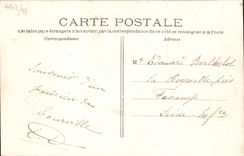 CARTE POSTALE
Certains pays étrangers n'acceptent pas la correspondance de ce côté se renseigner à la Poste
Correspondance
Adresse
Souvenir d'un
Parisien de
Tourville
Mr Edouard Berthelot
la Roquette près
Fécamp
Seine Infre